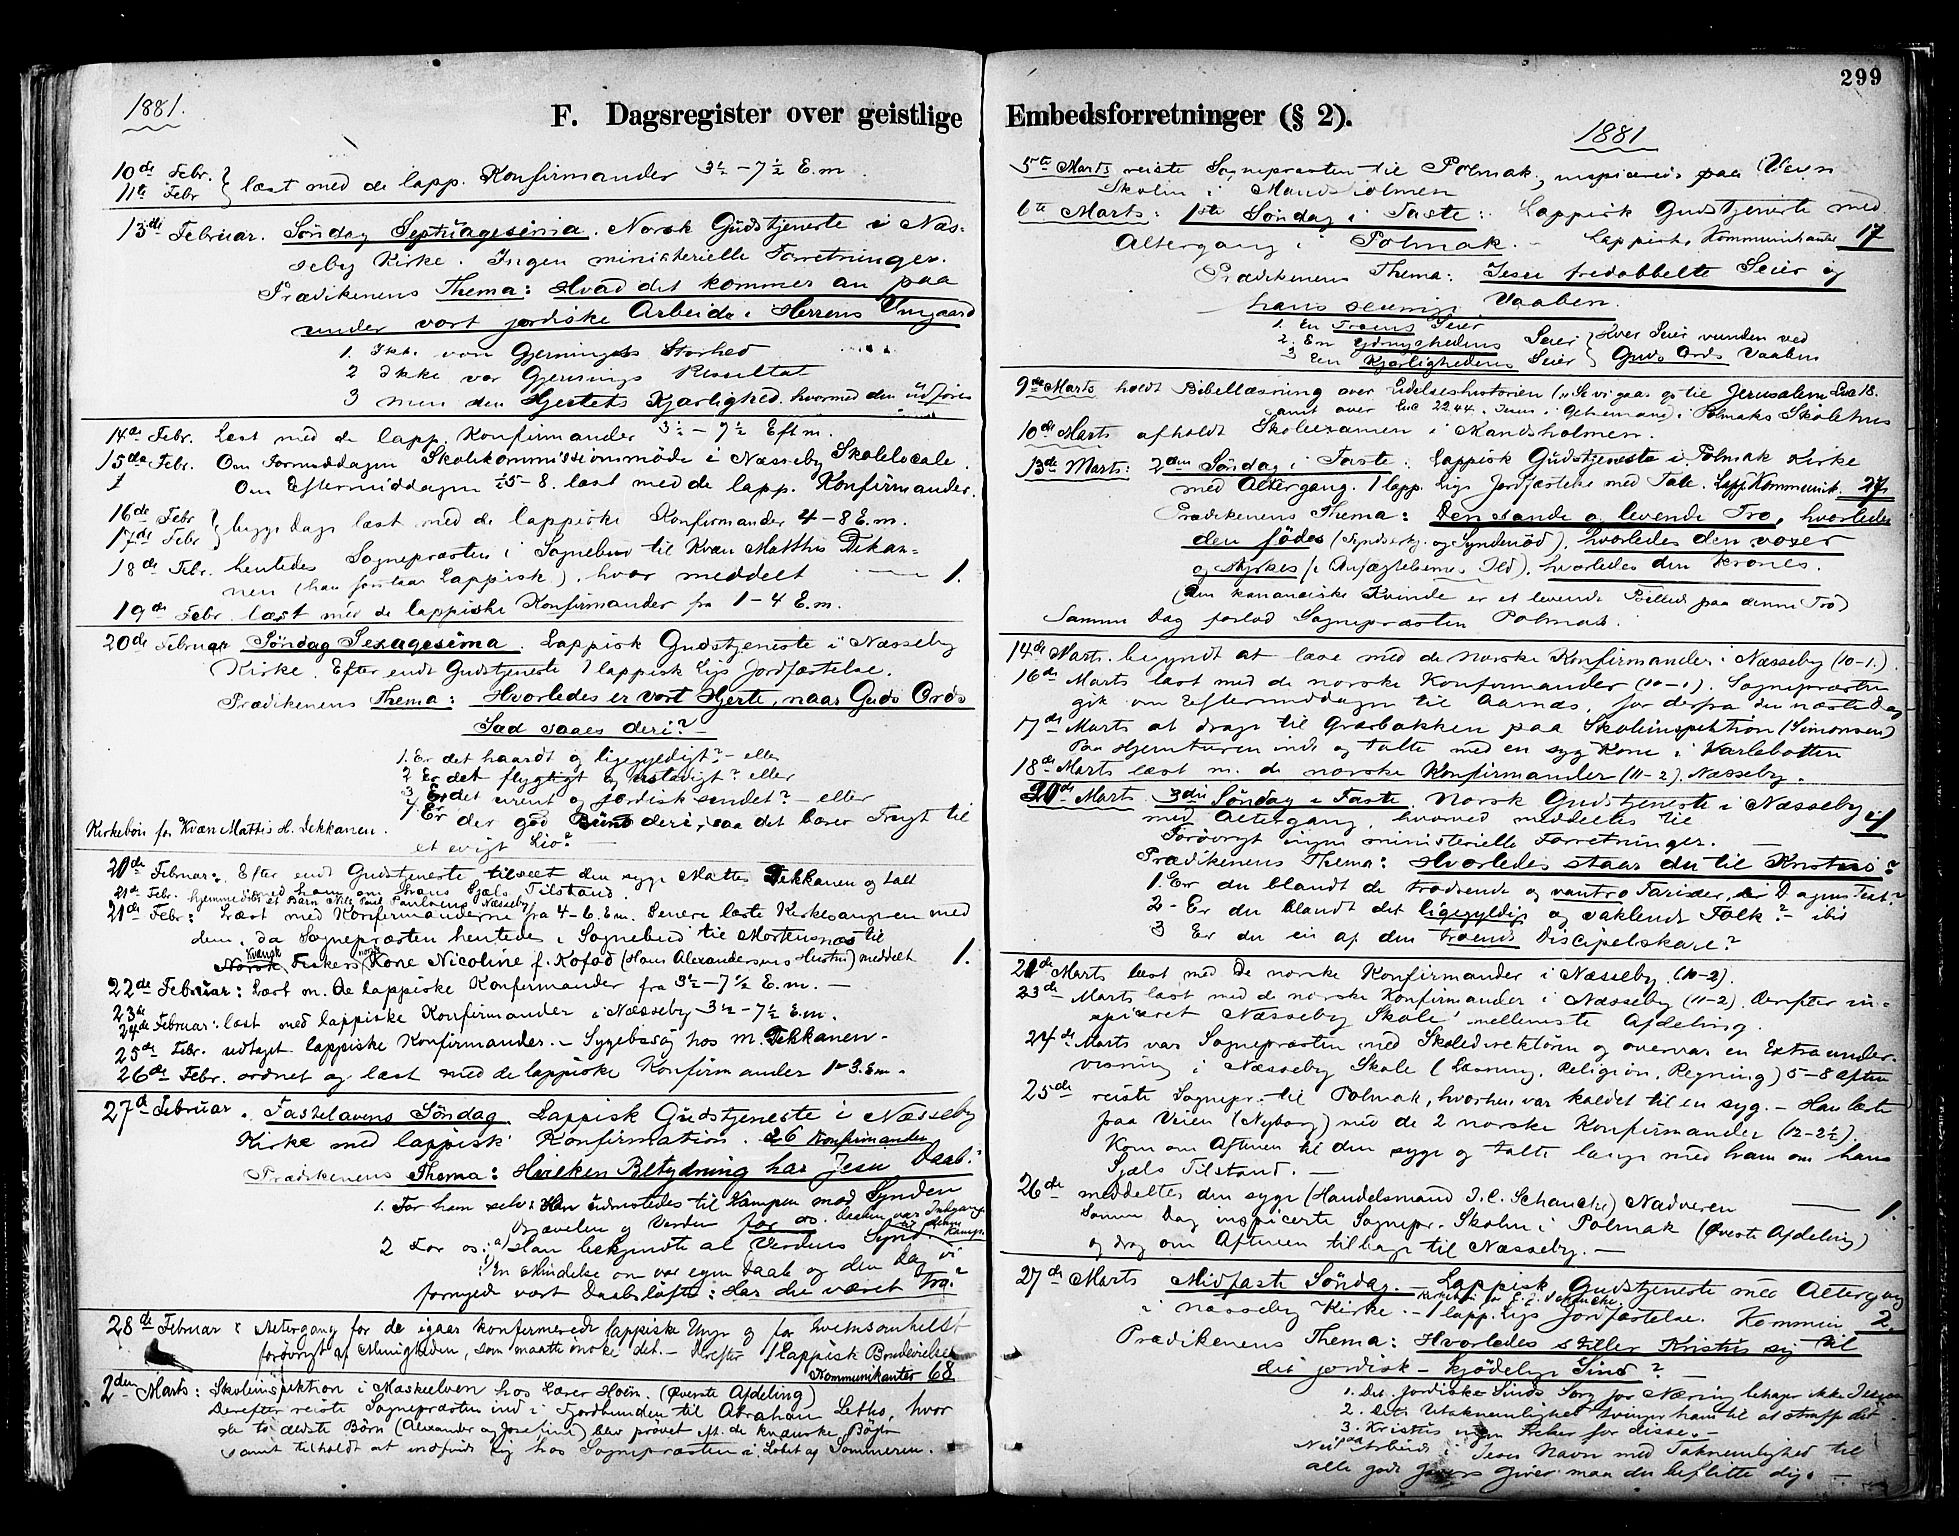 1881.
F. Dagsregister over geistlige
10de Febr.
11te Febr } læst med de lapp. Konfirmander 3½-7½ E.m.
13de Februar. Søndag Septuagesima. Norsk Gudstjeneste i Næs-
seby Kirke. Ingen ministerielle Forretninger.
Prædikenens Thema: Hvad det kommer an paa
under vort jordiske Arbeide i Herrens Vingaard
1. Ikke vor Gjernings Storhed
2 Ikke vor Gjernings Resultat
3 men den Hjertets Kjærlighed, hvormed den udføres
14de Febr. Læst med de lapp. Konfirmander 3½-7½ Eft m.
15de Febr. Om Formiddagen Skolekommissionsmøde i Næsseby Skolelocale.
Om Eftermiddagen ½5-8. læst med de lapp. Konfirmander.
16de Febr
17de Febr } begge Dage læst med de lappiske Konfirmander 4-8 E.m.
18de Febr. hentedes Sognepræsten i Sognebud til Kvæn Matthis Dekan-
nen (han forstaar Lappisk), hvor meddelt 1.
19de Febr læst med de lappiske Konfirmander fra 1-4 E.m.
20de Februar Søndag Sexagesima. Lappisk Gudstjeneste i Næsseby
Kirke. Efter endt Gudstjeneste 1 lappisk Ligs Jordfæstelse.
Prædikenens Thema: Hvorledes er vort Hjerte, naar Guds Ords
Sæd saaes deri?
1. Er det haardt og ligegyldigt? - eller
2 Er det flygtigt og ustadigt? eller
3 Er det urent og jordisk sindet? - eller
4. Er der god Bund deri, saa det bærer Frugt til
et evigt Liv?
Kirkebøn for Kvæn Mattis H. Dekkanen.
20de Februar. Efter endt Gudstjeneste tilseet den syge Mattis Dekkanen og talt
med ham om hans Sjæls Tilstand.
21de Febr. hjemmedøbt et Barn Nils Paulsens Næsseby
21de Febr: Læst med Konfirmanderne fra 4-6 E.m. Senere læste Kirkesangeren med
dem, da Sognepræsten hentedes i Sognebud til Mortensnæs til
Kvænsk Fiskers norsk Kone Nicoline f. Kofod (Hans Alexandersens Hustru) meddelt 1.
22de Februar: Læst m. de lappiske Konfirmander fra 3½-7½ E.m. -
23de
24de Februar: læst med lappiske Konfirmander i Næsseby 3½-7½ E.m.
25de Febr. udtaget lappiske Konfirmander. - Sygebesøg hos M. Dekkanen.
26de Febr. ordnet og læst med de lappiske Konfirmander 1-3 E.m.
27de Februar. Fastelavens Søndag. Lappisk Gudstjeneste i Næsseby
Kirke med lappisk Konfirmation. 26 Konfirmander
Prædikenens Thema: Hvilken Betydning har Jesu Daab?
1. For ham selv: Han udrustedes til Kampen mod Synden
Djævelen og Verden for os. Daaben var Indgang til denne Kamp.
2 For os: a) Han bekjendte al Verdens Synd
b) En Mindelse om vor egen Daab og den Dag vi
fornyede vort Daabsløfte: Har du været tro?
28de Februar: Altergang for de igaar konfirmerede lappiske Unge og for hvemsomhelst
forøvrigt af Menigheden, som maatte ønske det. - Derefter 1 lappisk Brudevielse
Kommunikanter 68
2den Marts: Skoleinspektion i Maskeelven hos Lærer Holm. (Øverste Afdeling)
Derefter reiste Sognepræsten ind i Fjordbunden til Abraham Leths, hvor
de to ældste Børn (Alexander og Josefine) blev prøvet eft. de kvænske Bøger
samt tilholdt at indfinde sig hos Sognepræsten i Løbet af Sommeren.
299
Embedsforretninger (§ 2).
1881
5te Marts reiste Sognepræsten til Polmak, inspicerede paa Veien
Skolen i Mandsholmen
6te Marts: 1ste Søndag i Faste: Lappisk Gudstjeneste med
Altergang i Polmak. - Lappiske Kommunikanter 17
Prædikenens Thema: Jesu tredobbelte Seier og
hans seierrige Vaaben.
1. En Troens Seier
2. En Ydmyghedens Seier
3 En Kjærlighedens Seier } Hver Seier vunden ved Guds Ords Vaaben
9de Marts holdt Bibellæsning over Lidelseshistorien ("Se vi gaar op til Jerusalem" Luc 18.
samt over Luc 22.44. Jesus i Gethsemane) i Polmaks Skolehus
10de Marts afholdt Skoleexamen i Mandsholmen.
13de Marts: 2den Søndag i Faste: Lappisk Gudstjeneste i Polmak Kirke
med Altergang. 1 lapp. Ligs Jordfæstelse med Tale. Lapp. Kommunik. 27
Prædikenens Thema: Den sande og levende Tro, hvorledes
den fødes (Syndserkj. og Syndenød), hvorledes den voxer
og styrkes (i Anfægtelsernes Ild), hvorledes den Krones.
(Den kananæiske Kvinde er et levende Billed paa denne Tro)
Samme Dag forlod Sognepræsten Polmak.
14de Marts. begyndt at læse med de norske Konfirmander i Næsseby (10-1.)
16de Marts læst med de norske Konfirmander (10-1). Sognepræsten
gik om Eftermiddagen til Aarnæs, for derfra den næste Dag
17de Marts at drage til Græsbakken paa Skoleinspektion (Simonsen)
Paa Hjemturen inde og talte med en syg Kone i Karlebotten
18de Marts læst m. de norske Konfirmander (11-2). Næsseby.
20de Marts 3die Søndag i Faste. Norsk Gudstjeneste i Næsseby
med Altergang, hvorved meddeltes til 1
Forøvrigt ingen ministerielle Forretninger.
Prædikenens Thema: Hvorledes staar du til Kristus?
1. Er du blandt de trodsende og vantro Farisæer, i Dagens Text?
2 - Er du blandt det ligegyldige og vaklende Folk? - ibid
3 Er du en af den troende Discipelskare?
21de Marts læst med de norske Konfirmander i Næsseby. (10-2).
23de Marts læst med de norske Konfirmander i Næsseby (11-2). Derefter in-
spiceret Næsseby Skole, mellemste Afdeling.
24de Marts var Sognepræsten med Skoledirektøren og overvar en Extraunder-
visning i Næsseby Skole (Læsning, Religion, Regning) 5-8 Aften
25de reiste Sognepr. til Polmak, hvorhen var kaldet til en syg. - Han læste
paa Veien (Nyborg) med de 2 norske Konfirmander (12-2½).
Kom om Aftenen til den syge og talte længe med ham om hans
Sjæls Tilstand. -
26de meddeltes den syge (Handelsmand I. C. Schanche) Nadveren 1.
Samme Dag inspicerte Sognepr. Skolen i Polmak (Øverste Afdeling)
og drog om Aftenen tilbage til Næsseby. -
27de Marts Midfaste Søndag. - Lappisk Gudstjeneste med Altergang
i Næsseby Kirke. - Kirkebøn for I. C. Schanche. 1 lapp. Ligs Jordfæstelse. Kommun 2.
Prædikenens Thema: Hvorledes stiller Kristus sig til
det jordisk-kjødelige Sind?
1. Det jordiske Sinds Sorg for Næring behager ikke Jesus
2. Dets Utaknemlighed tvinger ham til at straffe det.
3. Kristus ingen for disse. -
Nei Arbeide i Jesu Navn med Taknemlighed til
alle gode Gavers Giver maa du beflitte dig. -